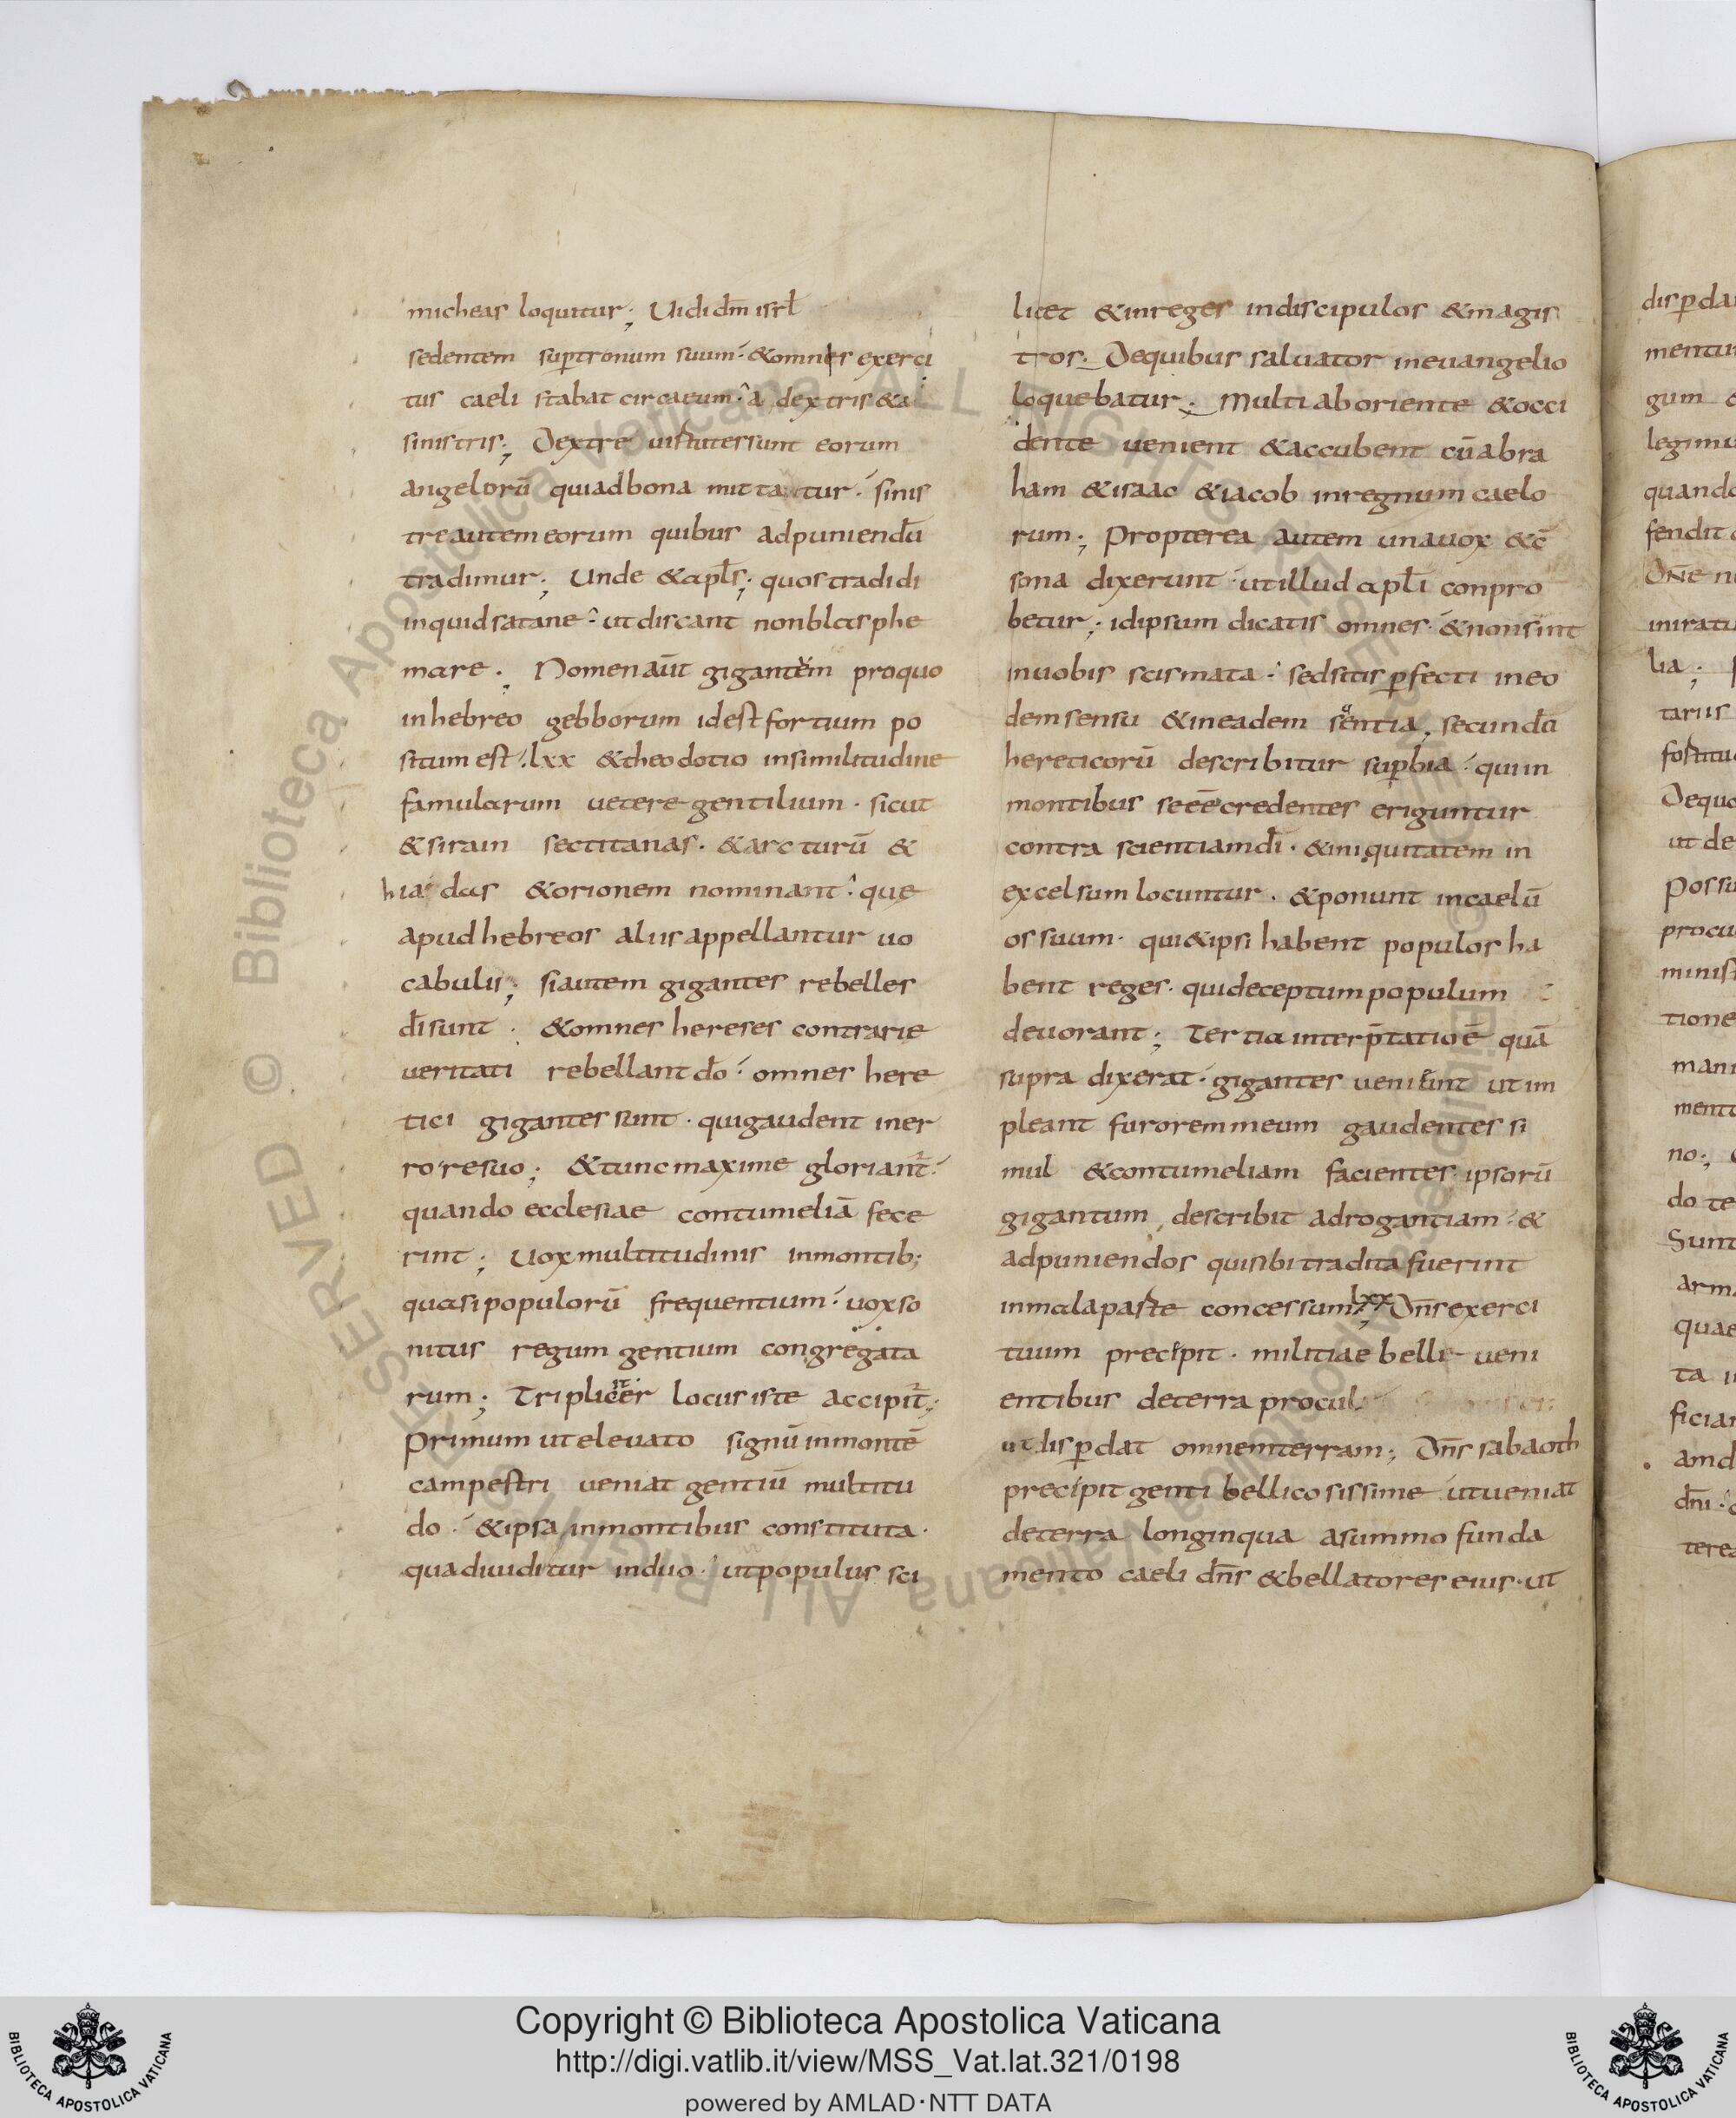 micheas loquitur; Uidi dm̄ isrł
sedentem sup tronum suum · &omnes exerci
tus caeli stabat circa eum · a dextris &a
sinistris; Dextre uirtutes sunt eorum
angelorū qui ad bona mittantur · sinis
tre autem eorum quibus ad puniendū
tradimur; Unde & aplˉs; quos tradidi
inquid satane · ut discant non blasphe
mare; Nomen aūt gigantem pro quo
in hebreo gebborum id est fortium po
situm est · lxx & theodotio in similitudine
famularum uetere gentilium · sicut
& sirain sectitanas · & arcturū &
hiadas & orionem nominant · que
apud hebreos aliis appellantur uo
cabulis; si autem gigantes rebelles
dī sunt · & omnes hereses contrarie
ueritati rebellant dō · omnes here
tici gigantes sunt · qui gaudent in er
rore suo; & tunc maxime gloriant
quando ecclesiae contumeliā fece
rint; Uox multitudinis in montib;
quasi populorū frequentium · uox so
nitus regum gentium congregata
rum; Tripliciter locus iste accipit;
Primum ut eleuato signū in montē
campestri ueniat gentiū multitu
do · & ipsa in montibus constituta ·
qua diuiditur in duo · ut populus sci
licet & in reges in discipulos & magis
tros · De quibus saluator in euangelio
loquebatur; Multi ab oriente & occi
dente uenient & accubent cū abra
ham & isaac & iacob in regnum caelo
rum; Propterea autem una uox & c̄
sona dixerunt · ut illud aplī conpro
betur; id ipsum dicatis omnes · & non sint
in uobis scismata · sed sitis pfecti in eo
dem sensu & in eadem sentia, secundū
hereticorū describitur supbia · qui in
montibus se eē credentes eriguntur
contra scientiam dī · & iniquitatem in
excelsum locuntur · & ponunt in caelū
os suum · qui & ipsi habent populos ha
bent reges · qui deceptum populum
deuorant; Tertia interp̄tatioē quā
supra dixerat · gigantes uenirunt ut im
pleant furorem meum gaudentes si
mul & contumeliam facientes · ipsorū
gigantum describit adrogantiam · &
ad puniendos qui sibi tradita fuerint
in mala parte concessum; lxx Dn̄s exerci
tuum precipit · militiae belli ueni
entibus de terra procul
ut dispdat omnem terram; Dn̄s sabaoth
precipit genti bellicosissime · ut ueniat
de terra longinqua a summo funda
mento caeli dn̄s & bellatores eius · ut